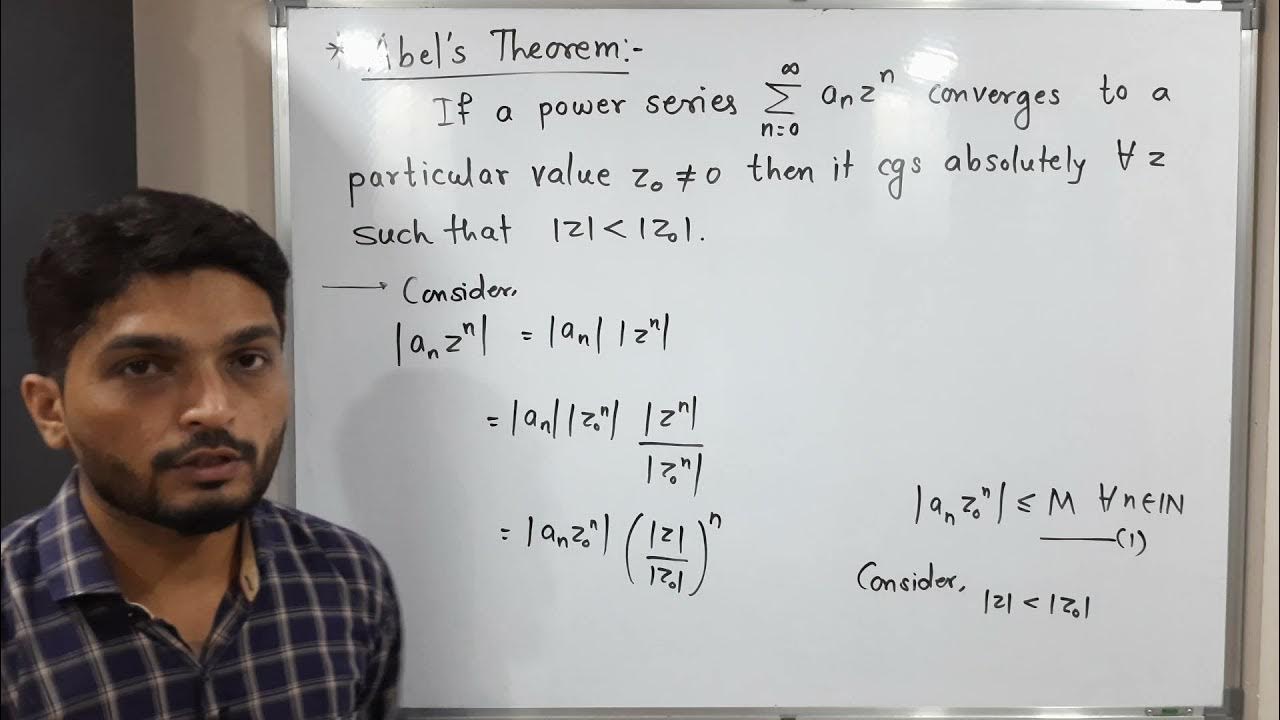 * Abel's Theorem:-
If a power series ∑_{n=0}^{∞} aₙzⁿ converges to a
particular value z₀ ≠ 0 then it cgs absolutely ∀ z
such that |z| < |z₀|.
→ Consider,
|aₙ zⁿ| = |aₙ| |zⁿ|
= |aₙ| |z₀ⁿ| |zⁿ| / |z₀ⁿ|
= |aₙ z₀ⁿ| (|z| / |z₀|)ⁿ
|aₙ z₀ⁿ| ≤ M ∀ n ∈ ℕ
——(1)
Consider, |z| < |z₀|